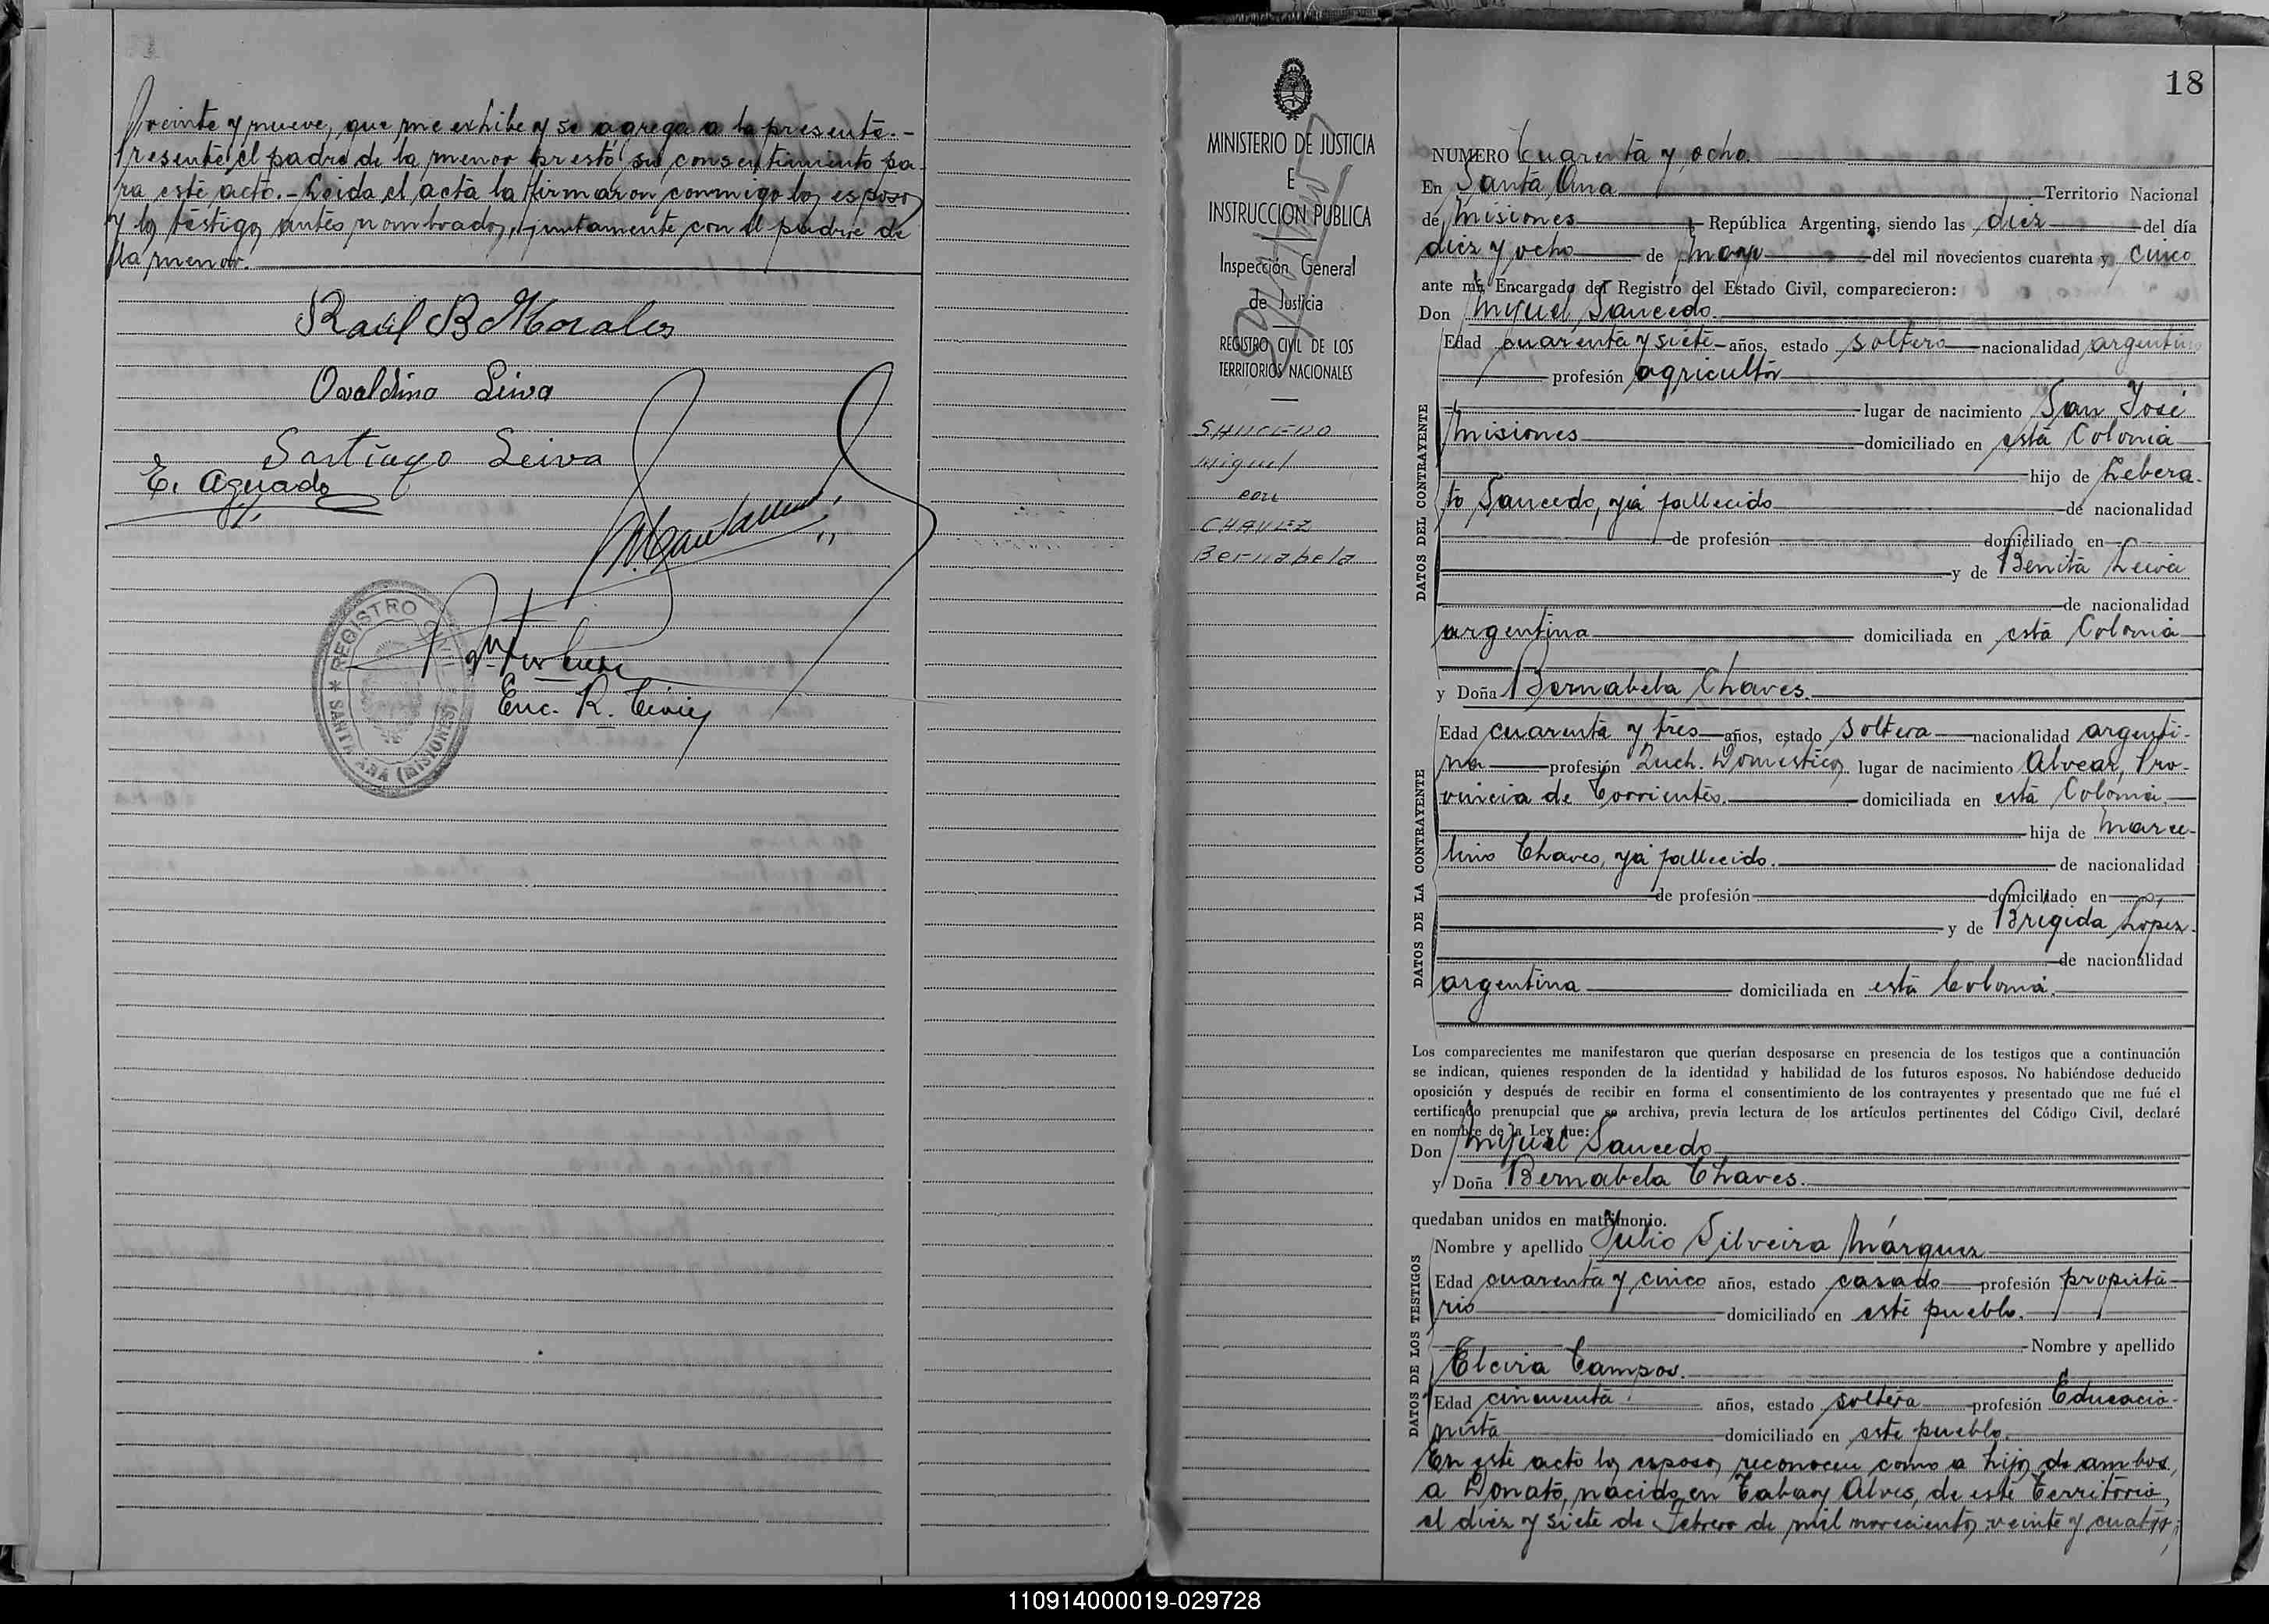 veinte y nueve, que me exhibe y se agrega a la presente.-
Presente el padre de la menor prestó su consentimiento pa-
ra este acto.- Leida el acta la firmaron conmigo los esposos
y los testigos antes nombrados, juntamente con el padre de
la menor.
Raúl B Morales
Ovaldino Leiva
Santiago Leiva
E. Aguado
Enc. R. Civil
REGISTRO CIVIL
SANTA ANA (MISIONES)
MINISTERIO DE JUSTICIA
E
INSTRUCCION PUBLICA
Inspección General
de Justicia
REGISTRO CIVIL DE LOS
TERRITORIOS NACIONALES
SAUCEDO
Miguel
con
CHAVEZ
Bernabela
18
NUMERO Cuarenta y ocho.
En Santa Ana Territorio Nacional
de Misiones República Argentina, siendo las diez del día
diez y ocho de mayo del mil novecientos cuarenta y cinco
ante mí, Encargado del Registro del Estado Civil, comparecieron:
Don Miguel Saucedo.
DATOS DEL CONTRAYENTE
Edad cuarenta y siete años, estado soltero nacionalidad argentino
profesión agricultor
lugar de nacimiento San José
Misiones domiciliado en esta Colonia
hijo de Libera-
to Saucedo, ya fallecido de nacionalidad
de profesión domiciliado en
y de Benita Leiva
de nacionalidad
argentina domiciliada en esta Colonia
y Doña Bernabela Chaves.
DATOS DE LA CONTRAYENTE
Edad cuarenta y tres años, estado soltera nacionalidad argenti-
na profesión Queh. Domésticos lugar de nacimiento Alvear, Pro-
vincia de Corrientes. domiciliada en esta Colonia.
hija de Marce-
lino Chaves, ya fallecido. de nacionalidad
de profesión domiciliado en
y de Brígida López.
de nacionalidad
argentina domiciliada en esta Colonia.
Los comparecientes me manifestaron que querían desposarse en presencia de los testigos que a continuación
se indican, quienes responden de la identidad y habilidad de los futuros esposos. No habiéndose deducido
oposición y después de recibir en forma el consentimiento de los contrayentes y presentado que me fué el
certificado prenupcial que se archiva, previa lectura de los artículos pertinentes del Código Civil, declaré
en nombre de la Ley que:
Don Miguel Saucedo
y Doña Bernabela Chaves.
quedaban unidos en matrimonio.
DATOS DE LOS TESTIGOS
Nombre y apellido Julio Silveira Márquez
Edad cuarenta y cinco años, estado casado profesión propieta-
rio domiciliado en este pueblo.
Nombre y apellido
Elcira Campos.
Edad cincuenta años, estado soltera profesión Educacio-
nista domiciliado en este pueblo.
En este acto los esposos reconocen como a hijos de ambos,
a Donato, nacido en Tabay Alves, de este Territorio,
el diez y siete de Febrero de mil novecientos veinte y cuatro;
110914000019-029728